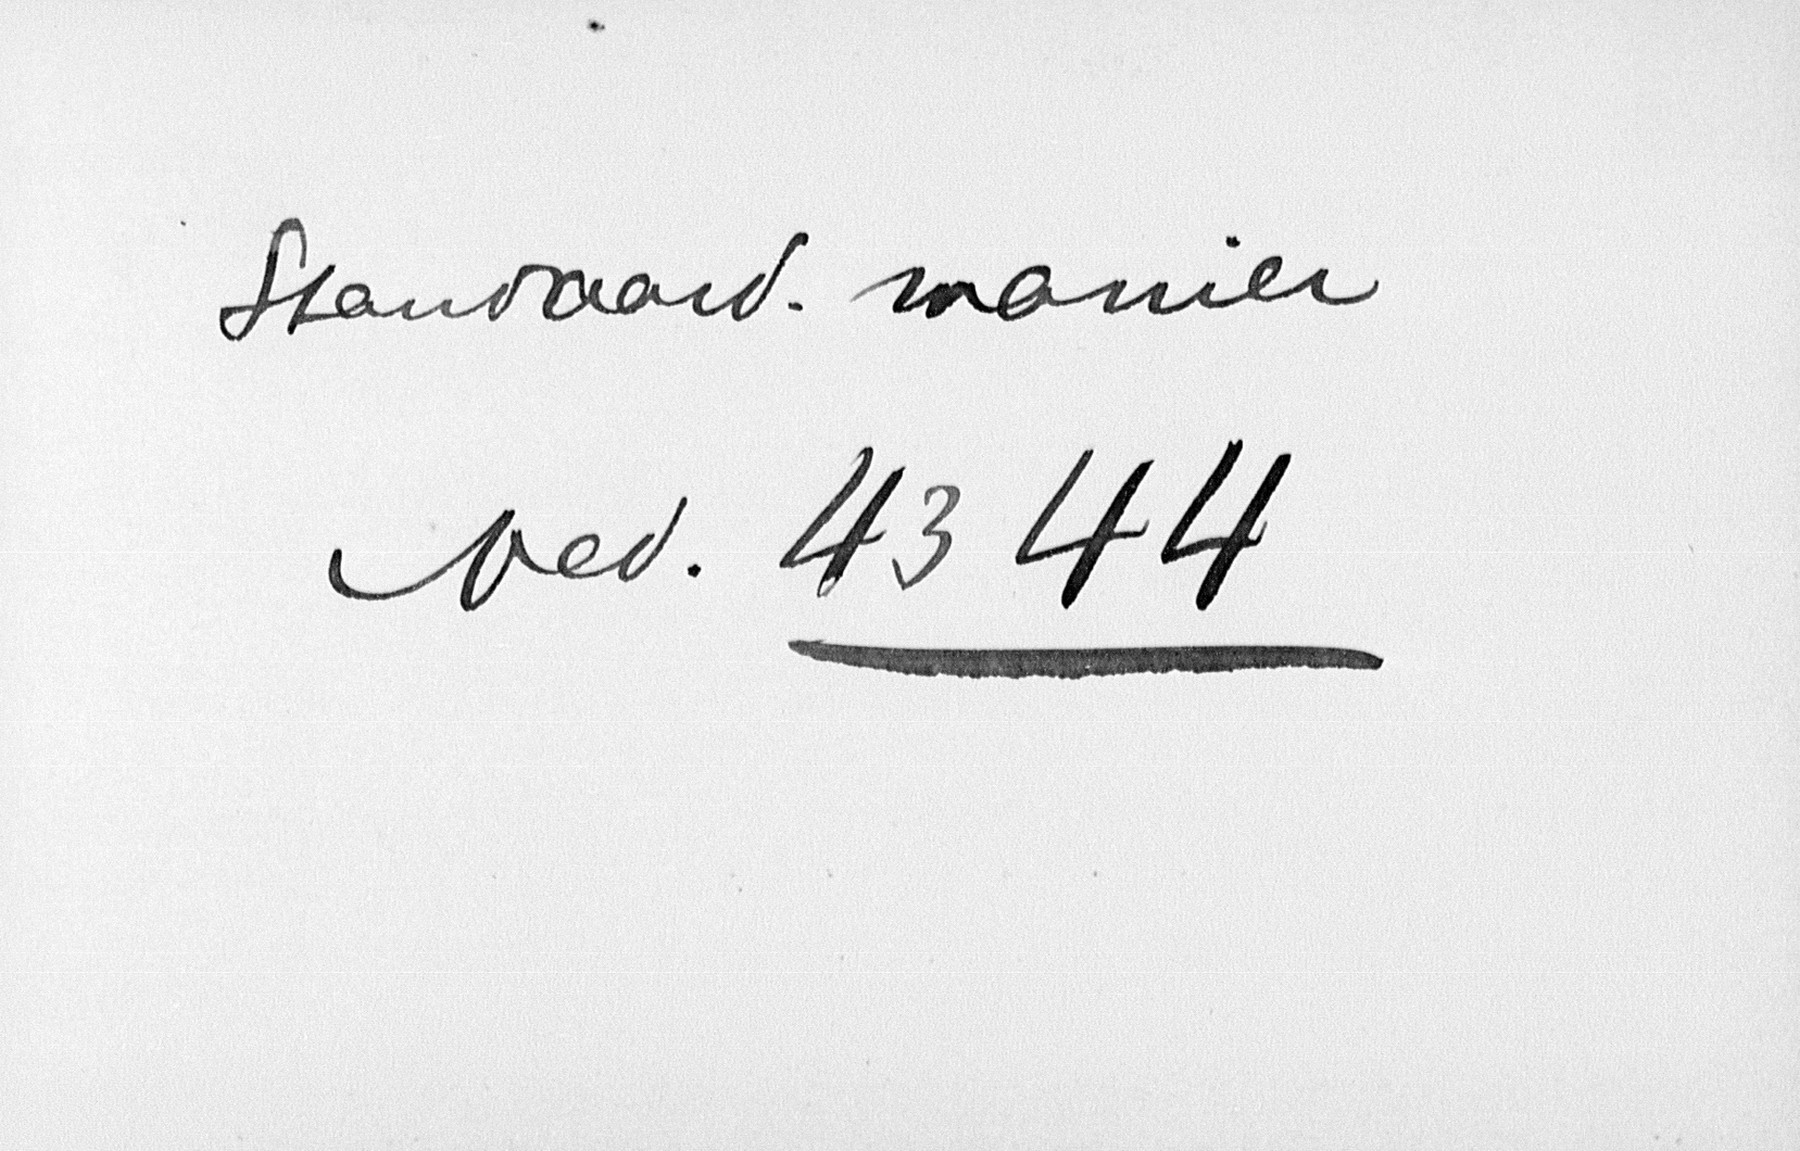 Standaard. manier
Ned. 43 44